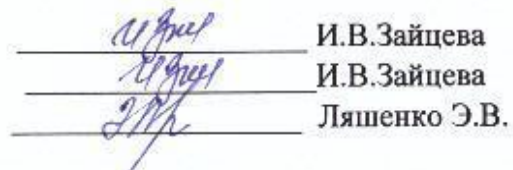 И.В.Зайцева
И.В.Зайцева
Ляшенко Э.В.